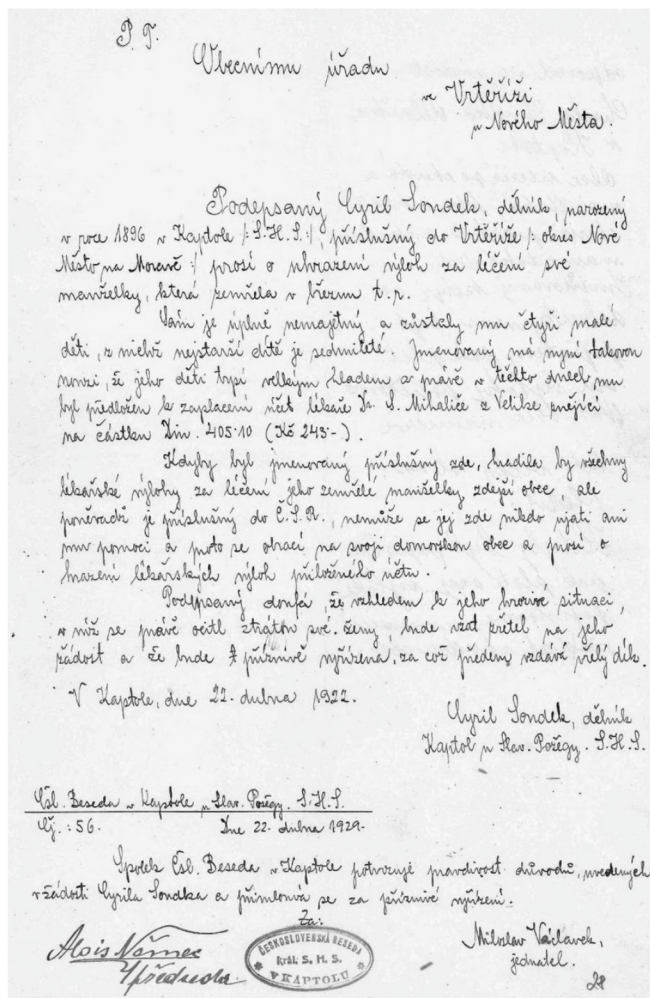 P. T.
Obecnímu úřadu
ve Vrtěříži
u Nového Města.
Podepsaný Cyril Sondek, dělník, narozený
v roce 1896 v Kaptole /: S.H.S.:/, příslušný do Vrtěříže /: okres Nové
Město na Moravě :/ prosí o uhrazení výloh za léčení své
manželky, která zemřela v březnu t. r.
Sám je úplně nemajetný a zůstaly mu čtyři malé
děti, z nichž nejstarší dítě je sedmileté. Jmenovaný má nyní takovou
nouzi, že jeho děti trpí velkým hladem a právě v těchto dnech mu
byl předložen k zaplacení účet lékaře Dr. S. Mihaliče z Velike znějící
na částku Din. 405·10 (Kč 243·-).
Kdyby byl jmenovaný příslušný zde, hradila by všechny
lékařské výlohy za léčení jeho zemřelé manželky zdejší obec, ale
poněvadž je příslušný do Č.S.R., nemůže se jej zde nikdo ujati ani
mu pomoci a proto se obrací na svoji domovskou obec a prosí o
hrazení lékařských výloh přiloženého účtu.
Podepsaný doufá, že vzhledem k jeho hrozivé situaci,
v níž se právě ocitl ztrátou své ženy, bude vzat zřitel na jeho
žádost a že bude příznivě vyřízena, za což předem vzdává vřelý dík.
V Kaptole, dne 22. dubna 1922.
Cyril Sondek, dělník
Kaptol u Slav. Požegy. S.H.S.
Čsl. Beseda v Kaptole u Slav. Požegy. S.H.S.
Čj.: 56. Dne 22. dubna 1929.
Spolek Čsl. Beseda v Kaptole potvrzuje pravdivost důvodů, uvedených
v žádosti Cyrila Sondka a přimlouvá se za příznivé vyřízení.
Za:
Alois Němec
předseda.
ČESKOSLOVENSKÁ BESEDA
Král. S. H. S.
V KAPTOLU
Miloslav Václavek,
jednatel.
28